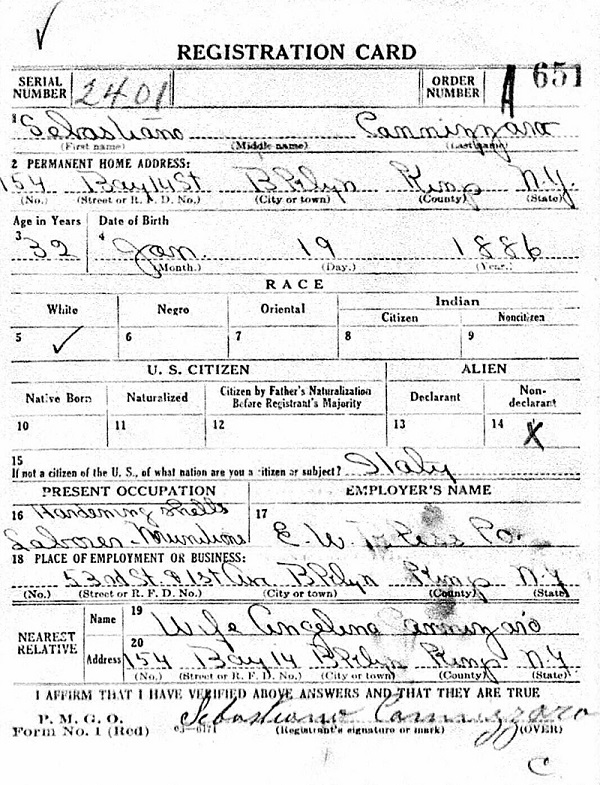 REGISTRATION CARD
SERIAL NUMBER 2401 ORDER NUMBER A 651
1 Sebastiano Cannizzaro
(First name) (Middle name) (Last name)
2 PERMANENT HOME ADDRESS:
154 Bay 14 St Bklyn Kings N.Y.
(No.) (Street or R. F. D. No.) (City or town) (County) (State)
Age in Years Date of Birth
3 32 4 Jan. 19 1886
(Month.) (Day.) (Year.)
RACE
White Negro Oriental Indian
Citizen Noncitizen
5 ✓ 6 7 8 9
U. S. CITIZEN ALIEN
Native Born Naturalized Citizen by Father's Naturalization Before Registrant's Majority Declarant Non-declarant
10 11 12 13 14 X
15
If not a citizen of the U. S., of what nation are you a citizen or subject? Italy
PRESENT OCCUPATION EMPLOYER'S NAME
16 Hardening Shells 17
Laborer - Munitions E. W. Co.
18 PLACE OF EMPLOYMENT OR BUSINESS:
53rd St & 1st Ave Bklyn Kings N.Y
(No.) (Street or R. F. D. No.) (City or town) (County) (State)
NEAREST RELATIVE
Name 19 Wife Angelina Cannizzaro
20
Address 154 Bay 14 Bklyn Kings N.Y
(No.) (Street or R. F. D. No.) (City or town) (County) (State)
I AFFIRM THAT I HAVE VERIFIED ABOVE ANSWERS AND THAT THEY ARE TRUE
P. M. G. O.
Form No. 1 (Red) 03-6171 Sebastiano Cannizzaro
(Registrant's signature or mark) (OVER)
C